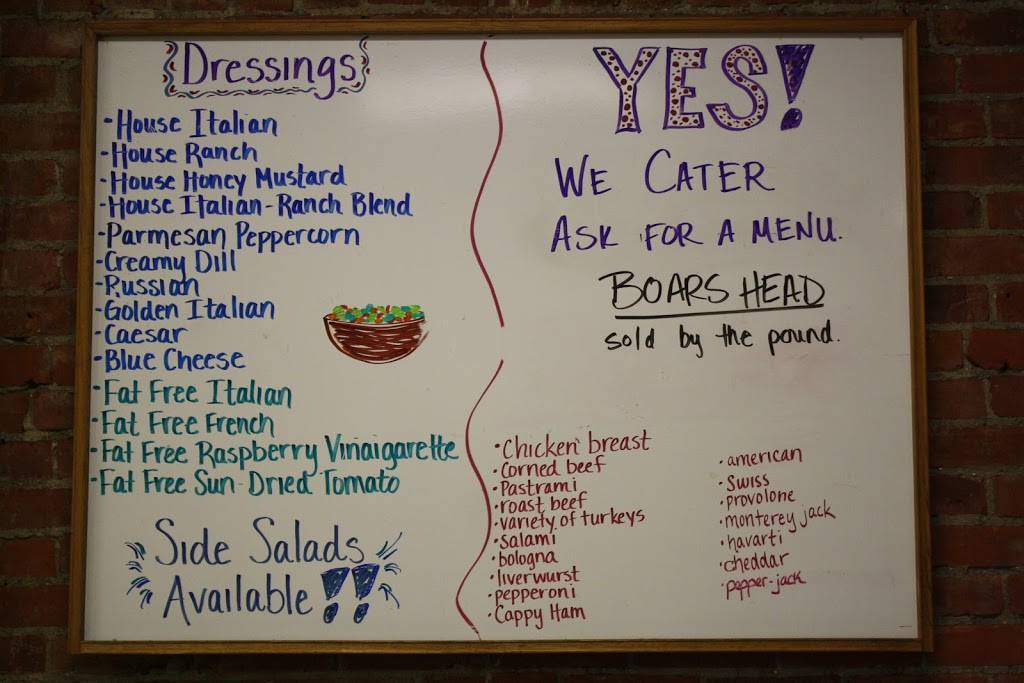 Dressings
-House Italian
-House Ranch
-House Honey Mustard
-House Italian-Ranch Blend
-Parmesan Peppercorn
-Creamy Dill
-Russian
-Golden Italian
-Caesar
-Blue Cheese
-Fat Free Italian
-Fat Free French
-Fat Free Raspberry Vinaigarette
-Fat Free Sun-Dried Tomato
Side Salads
Available!!
YES!
WE CATER
ASK FOR A MENU.
BOARS HEAD
sold by the pound.
·Chicken breast
·Corned beef
·Pastrami
·roast beef
·variety of turkeys
·Salami
·bologna
·liverwurst
·pepperoni
·Cappy Ham
·american
·Swiss
·provolone
·monterey jack
·havarti
·cheddar
·pepper-jack